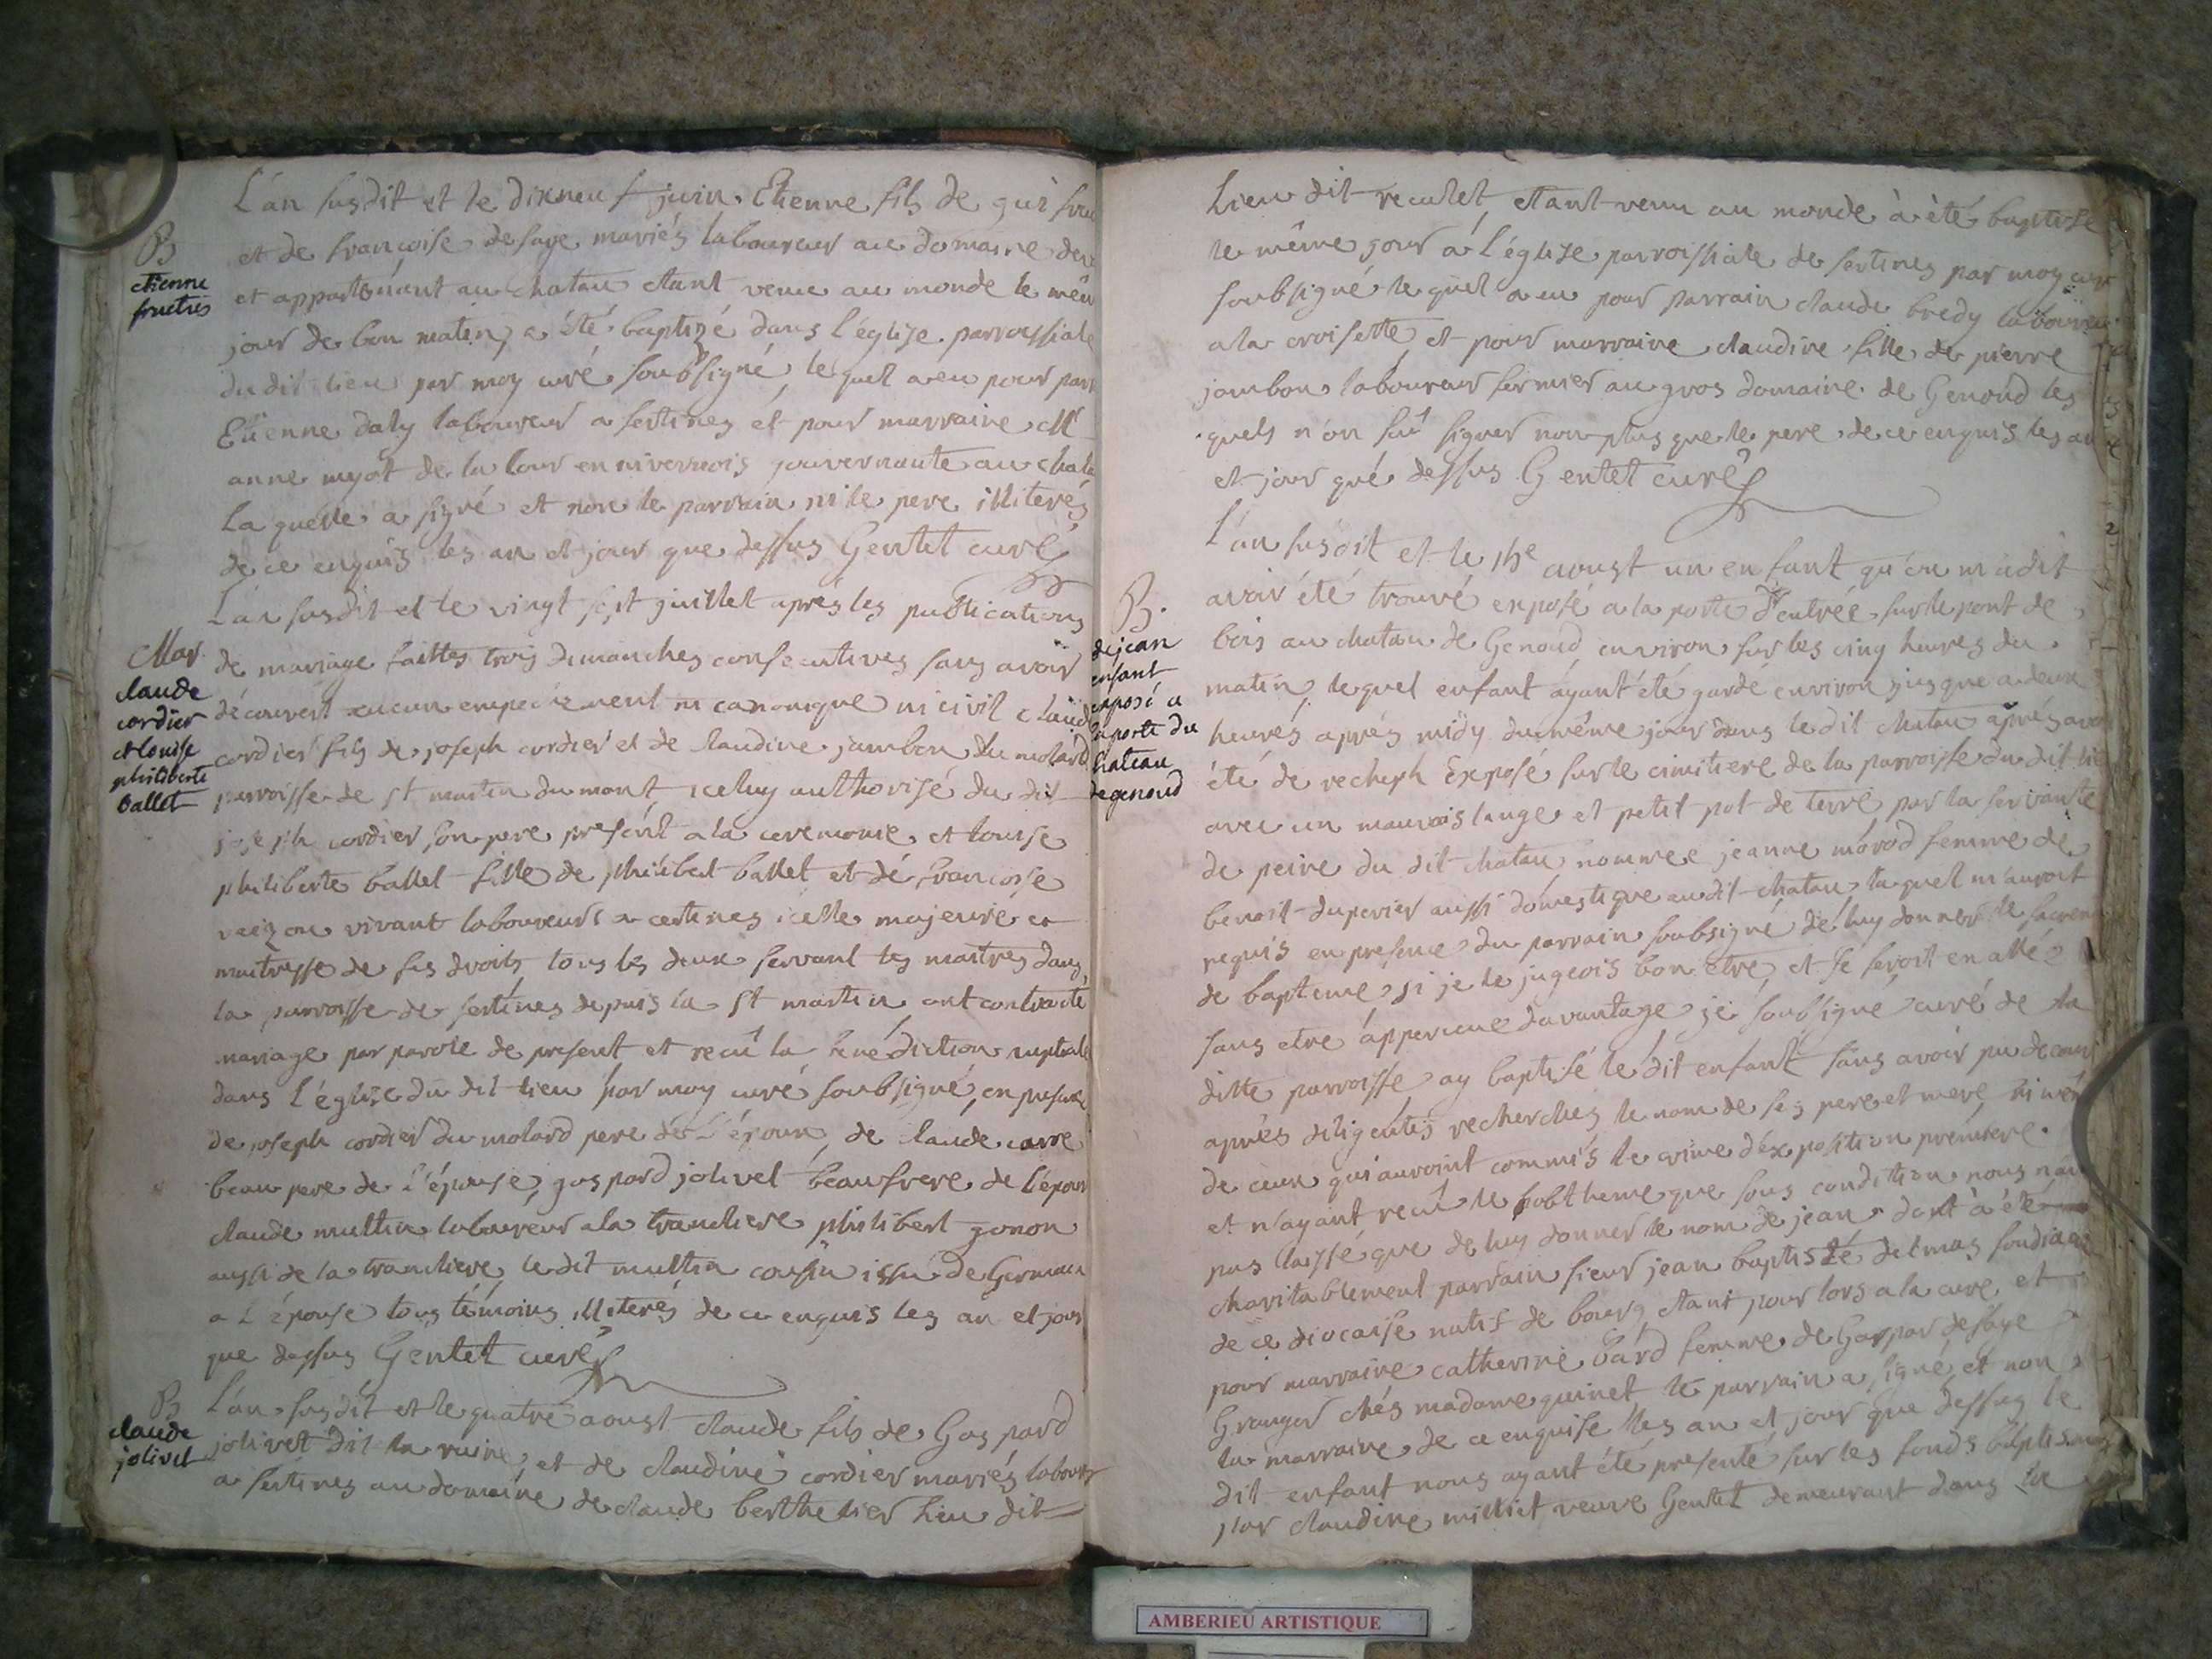 L'an susdit et le dixneuf juin Etienne fils de gui
B
etienne
fructus
et de francoise desage mariés laboureur au domaine
et appartenant au chatau etant venu au monde le mêm
jour de bon matin, a été baptizé dans l'église parroissiale
du dit lieu par moy curé soubsigné, lequel a eu pour par
Etienne daly laboureur a sertines et pour marraine
anne myot de la Cour en nivernois gouvernante au
laquelle a signé et non le parrain ni le pere illiterés
de ce enquis les an et jour que dessus Gentet curé
L'an susdit et le vingt sept juillet aprés les publications
Mar.
claude
cordier
et louise
philiberte
ballet
de mariage faittes trois dimanches consecutives sans avoir
découvert aucun empechement ni canonique ni civil claude
cordier fils de joseph cordier et de claudine jambon du molard
parroisse de st martin du mont, iceluy authorisé du dit
joseph cordier son pere present a la ceremonie et louise
philiberte ballet fille de philibert ballet et dé francoise
vivant laboureurs a certines icelle majeure et
maitresse de ses droits tous les deux servant les maitres dans
la parroisse de sertines depuis la st martin ont contracté
mariage par parole de present et recû la bénédiction nuptiale
dans l'église du dit lieu par moy curé soubsigné, en presence
de joseph cordier du molard pere de l'époux, de claude carre
beau pere de l'épouse, gaspard jolivet beaufrere de l'époux
claude multin laboureur a la trancliere philibert gonon
aussi de la tranclière, le dit multin cousin issu de Germain
a l'épouse tous témoins illiterés de ce enquis les an et jour
que dessus Gentet curé
B
claude
jolivet
L'an susdit et le quatre aoust claude fils de Gaspard
jolivet dit la ruine, et de claudine cordier mariés labour
a sertines au domaine de claude berthelier lieu dit
lieu dit reculet, etant venu au monde à été baptisé
le même jour à l'église parroissiale de sertines par moy curé
soubsigné lequel a eu pour parrain claude bredy laboureur
a la croisette et pour marraine claudine fille de pierre
jambon laboureur fermier au gros domaine de Genoud les
quels n'on sû signer non plus que le pere de ce enquis les an
et jour qué dessus Gentet curé
L'an susdit et le aoust un enfant qu'on m'a dit
B.
de jean
enfant
exposé a
la porte du
chateau
de genoud
avoir été trouvé exposé a la porte d'entrée sur le pont de
bois au chatau de Genoud environ sur les cinq heures du
matin, lequel enfant ayant été gardé environ jusque a deux
heures aprés midy du même jour dans le dit chatau aprés avoir
été de recheph exposé sur le cimitiere de la parroisse du dit lie
avec un mauvais lange et petit pot de terre par la servante
de peine du dit chatau nommée jeanne morod femme de
benoit duperier aussi domestique au dit chatau, laquel m'auroit
requis en presence du parrain soubsigné de luy donner le sacrem
de bapteme, si je le jugeois bon etre, et se seroit en allé
sans etre apperceue davantage, je soubsigné curé de la
ditte parroisse ay baptisé le dit enfant sans avoir pu decouvr
aprés diligentes recherches le nom de ses pere et mere, ni mem
de ceux qui auroint commis le crime d'exposition premiere
et n'ayant recû le babtheme que sous condition nous n'avo
pas laissé que de luy donner le nom de jean dont à été
charitablement parrain sieur jean baptisté delmas soudiacre
de ce diocaise natif de bourg etant pour lors a la cure et
pour marraine catherine bard femme de Gaspar desage
Granger chés madame quinet, le parrain a signé, et non
la marraine de ce enquise les an et jour que dessus le
dit enfant nous ayant été presenté sur les fonds baptismaux
par claudine millit veuve Gentet demeurant dans
AMBERIEU ARTISTIQUE